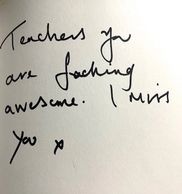 Teachers you
are fucking
awesome. I Miss
you x